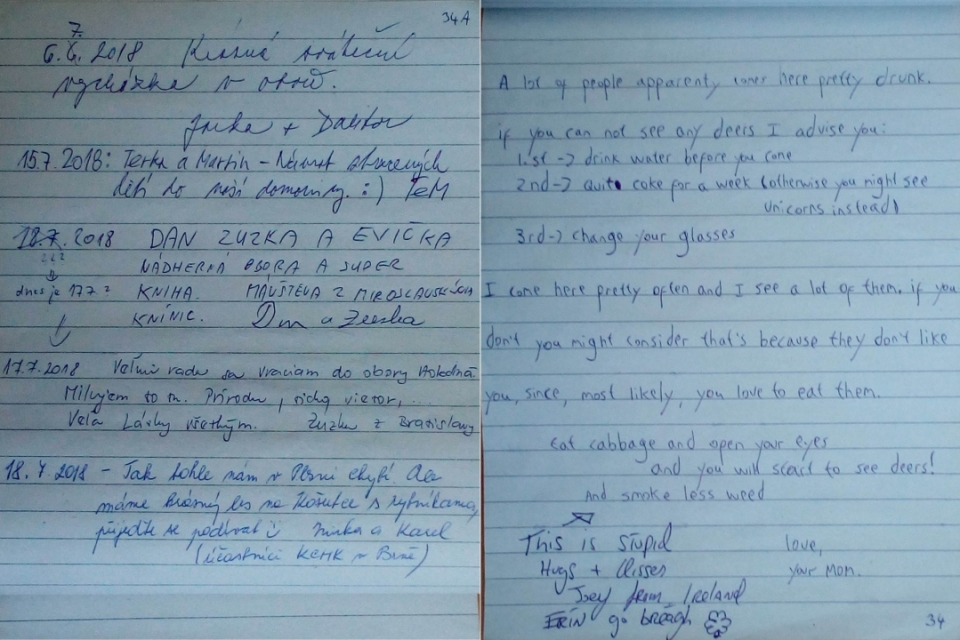 34A
7.
6. 6. 2018 Krásná sváteční
vycházka v oboře.
Jarka + Dalibor
15.7.2018: Terka a Martin - Návrat ztracených
dětí do naší domoviny. :) TeM
18.7. 2018 DAN ZUZKA A EVIČKA
??? NÁDHERNÁ OBORA A SUPER
dnes je 17.7 ? KNIHA.
KNÍNIC. Dan a Zuzka
17.7.2018 Veľmi rada sa vraciam do obory Holedná
Milujem to tu. Prírodu, tichý vietor,...
Veľa Lásky všetkým. Zuzka z Bratislavy
18.7.2018 - Tak tohle nám v Plzni chybí. Ale
máme krásný les na Košutce s rybníkama,
přijeďte se podívat :) a Karel
(účastníci v Brně)
A lot of people apparenty comes here pretty drunk.
if you can not see any deers I advise you:
1.st -> drink water before you come
2nd -> quit coke for a week (otherwise you might see
unicorns instead)
3rd -> change your glasses
I come here pretty often and I see a lot of them. if you
don't you might consider that's because they don't like
you, since, most likely, you love to eat them.
Eat cabbage and open your eyes
and you will start to see deers!
And smoke less weed
This is stupid love,
Hugs + Kisses your Mom.
Joey from Ireland
ERIN go breagh
34